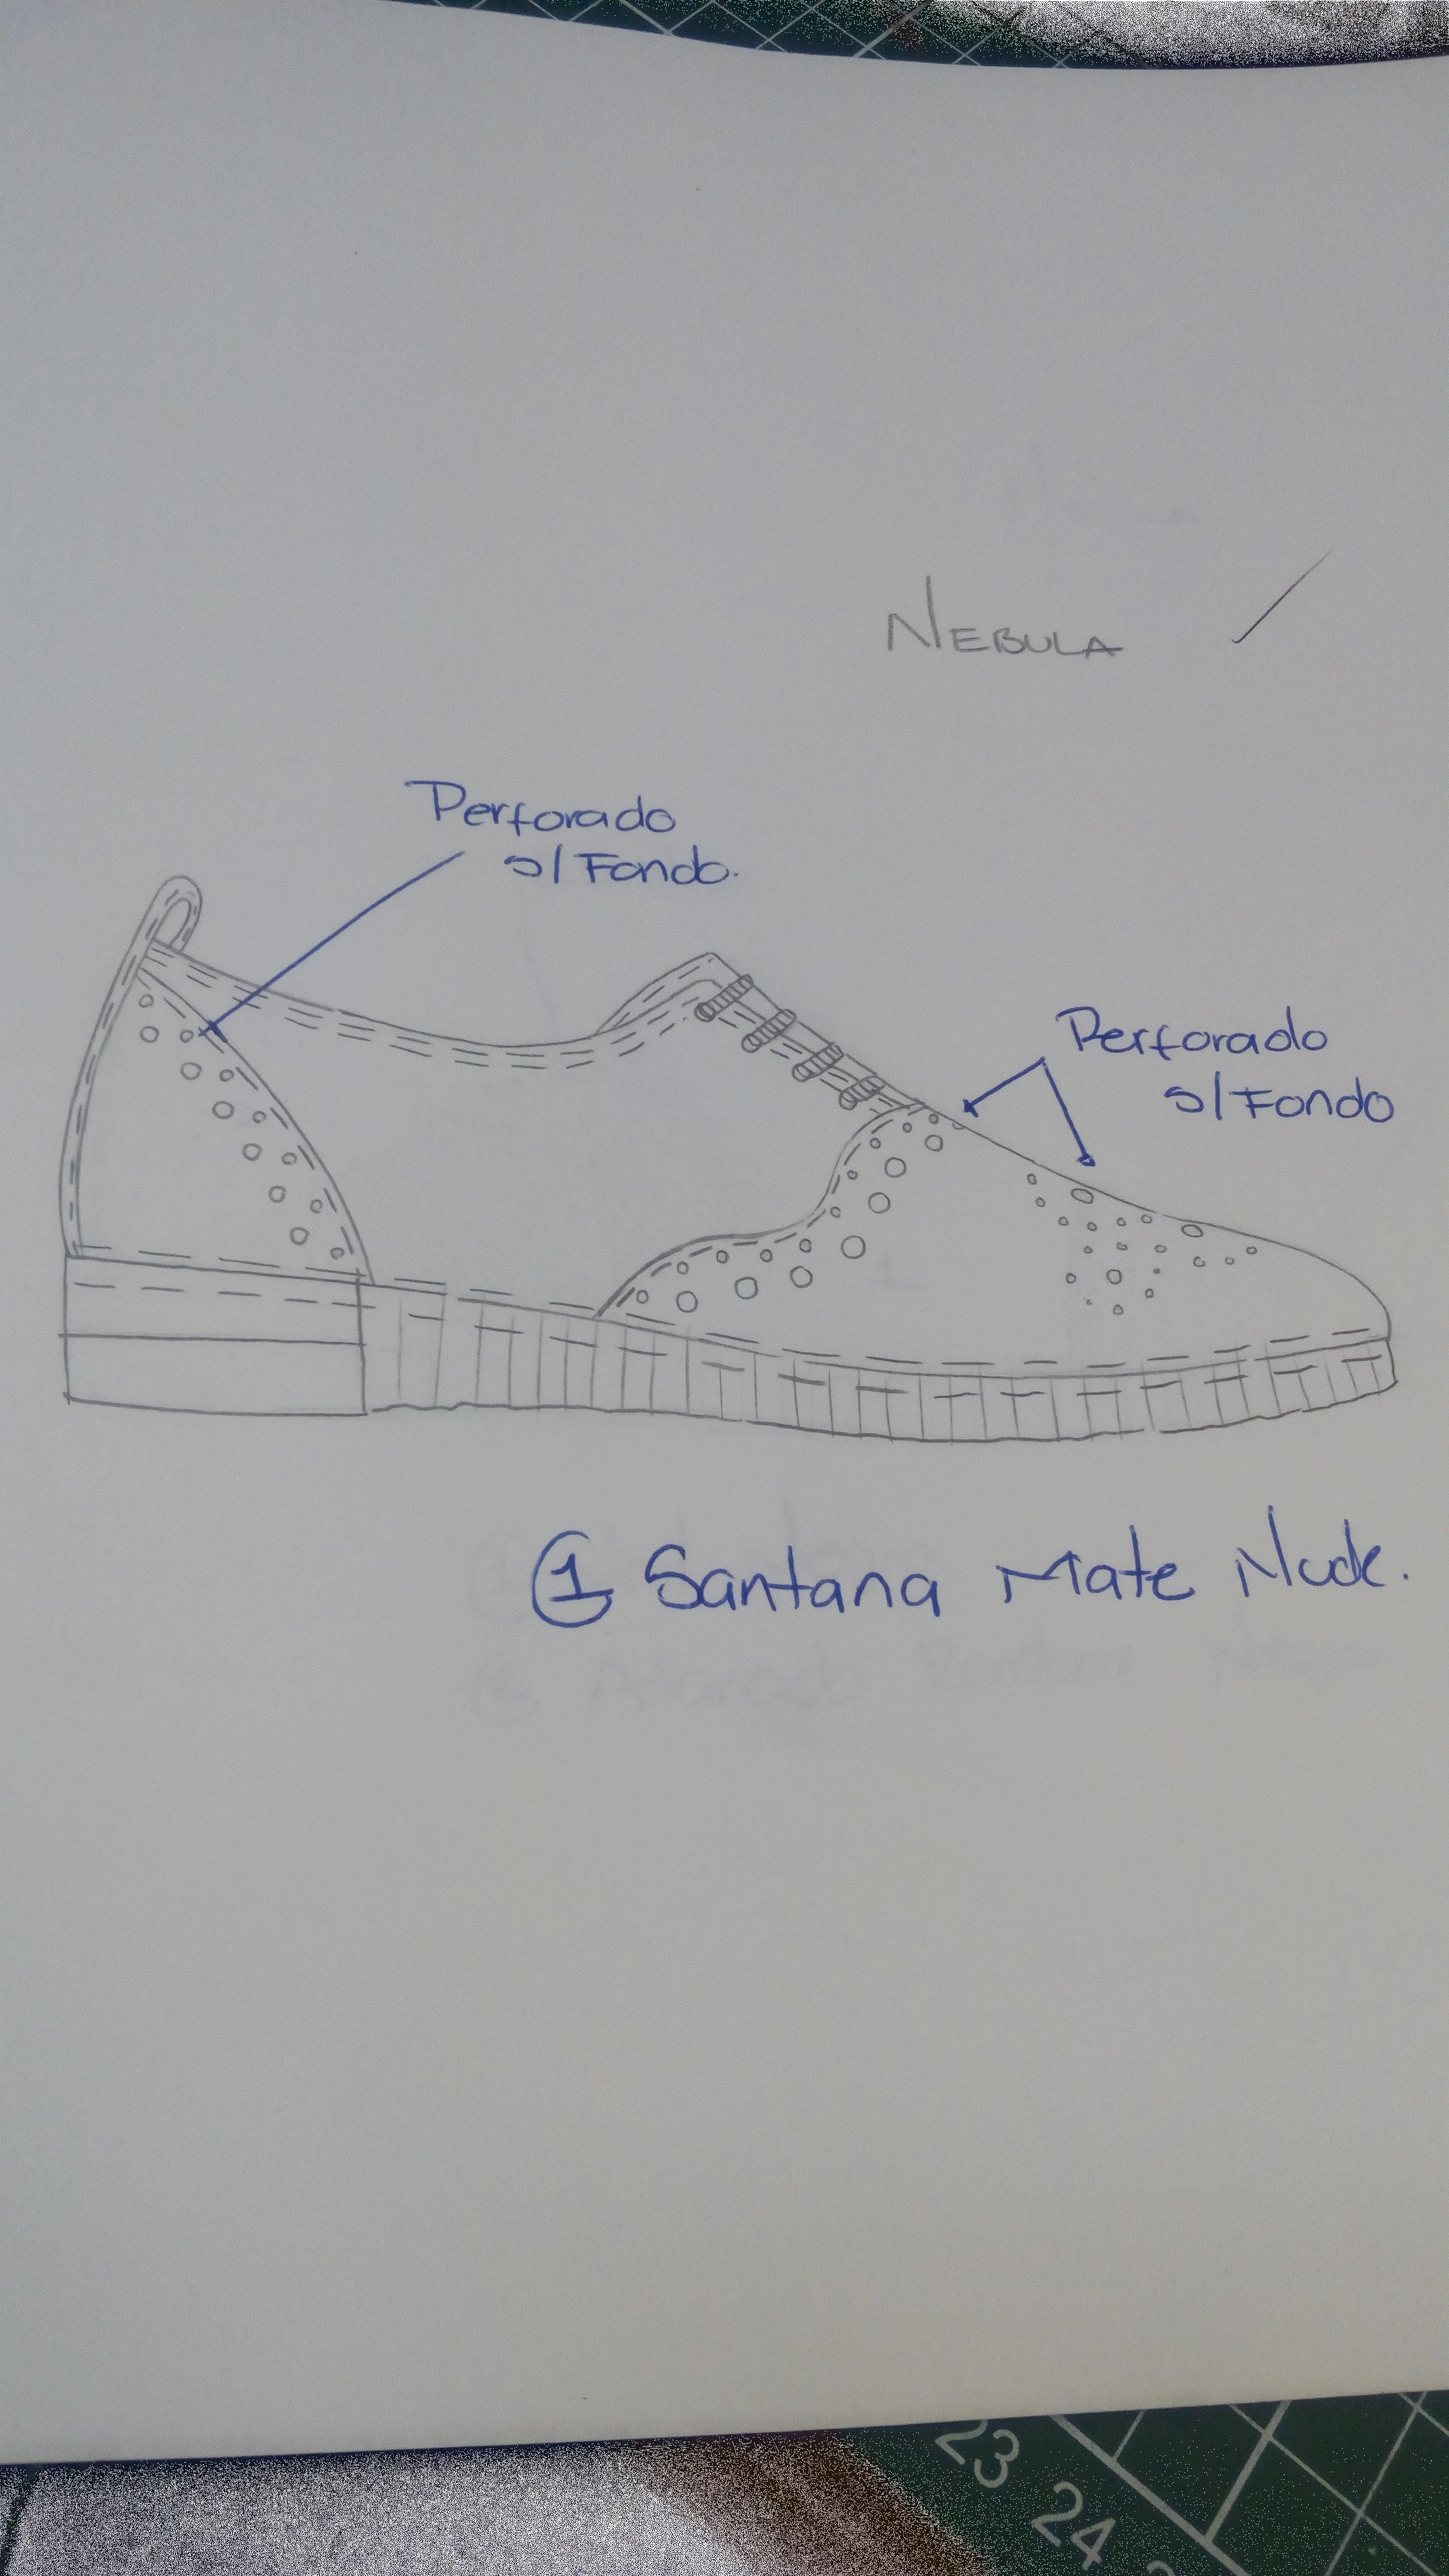 NEBULA
Perforado
s/Fondo.
Perforado
s/Fondo
1 Santana Mate Nude.
23
24